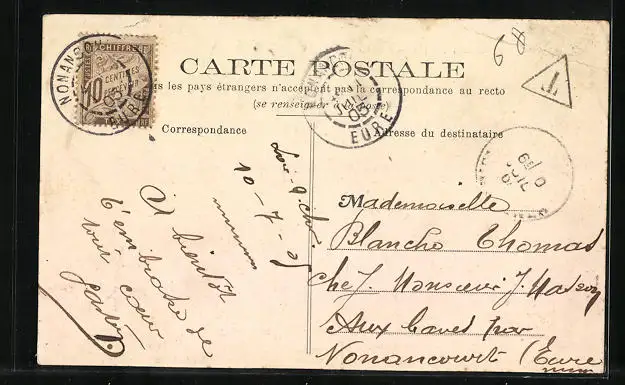 CARTE POSTALE
les pays étrangers n'acceptent pas la correspondance au recto
(se renseigner à la poste)
Correspondance
Adresse du destinataire
NONANCOURT
EURE
CHIFFRE
10
CENTIMES
À PERCEVOIR
EURE
T
68
10-7-05
A bientôt
t'embrasse de
tout cœur
Gaston
Mademoiselle
Blanche Thomas
chez Monsieur J.
Aux Caves par
Nonancourt (Eure